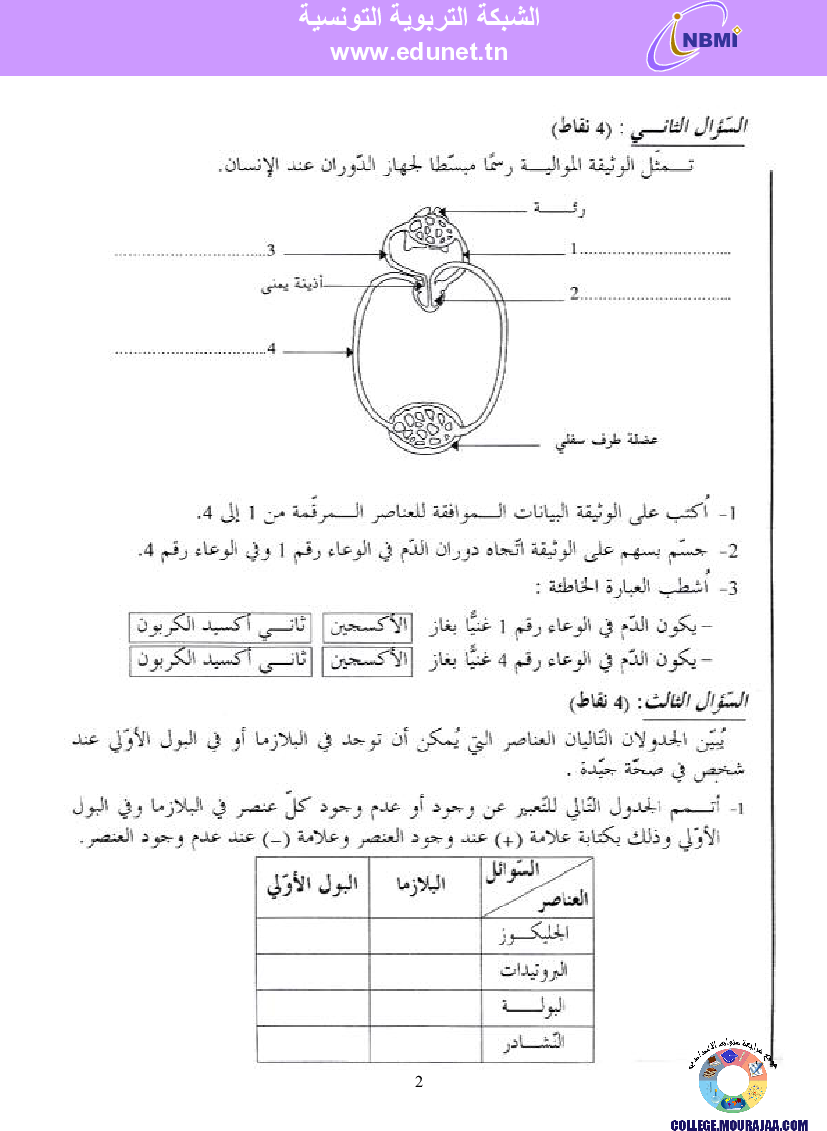 الشبكة التربوية التونسية
www.edunet.tn
iNBMi
السّؤال الثانـي : (4 نقاط)
تـمثّل الوثيقة الموالية رسمًا مبسّطا لجهاز الدّوران عند الإنسان.
رئـة
1
3
أذينة يمنى
2
4
عضلة طرف سفلي
1- أكتب على الوثيقة البيانات الـموافقة للعناصر الـمرقّمة من 1 إلى 4.
2- جسّم بسهم على الوثيقة اتّجاه دوران الدّم في الوعاء رقم 1 وفي الوعاء رقم 4.
3- أشطب العبارة الخاطئة :
– يكون الدّم في الوعاء رقم 1 غنيًّا بغاز الأكسجين ثانـي أكسيد الكربون
– يكون الدّم في الوعاء رقم 4 غنيًّا بغاز الأكسجين ثانـي أكسيد الكربون
السّؤال الثالث: (4 نقاط)
يُبيّن الجدولان التّاليان العناصر التي يُمكن أن توجد في البلازما أو في البول الأوّلي عند
شخص في صحّة جيّدة .
1- أتـمم الجدول التّالي للتّعبير عن وجود أو عدم وجود كلّ عنصر في البلازما وفي البول
الأوّلي وذلك بكتابة علامة (+) عند وجود العنصر وعلامة (–) عند عدم وجود العنصر.
السّوائل
العناصر
البلازما
البول الأوّلي
الجليكـوز
البروتيدات
البولـة
النّشـادر
2
COLLEGE.MOURAJAA.COM